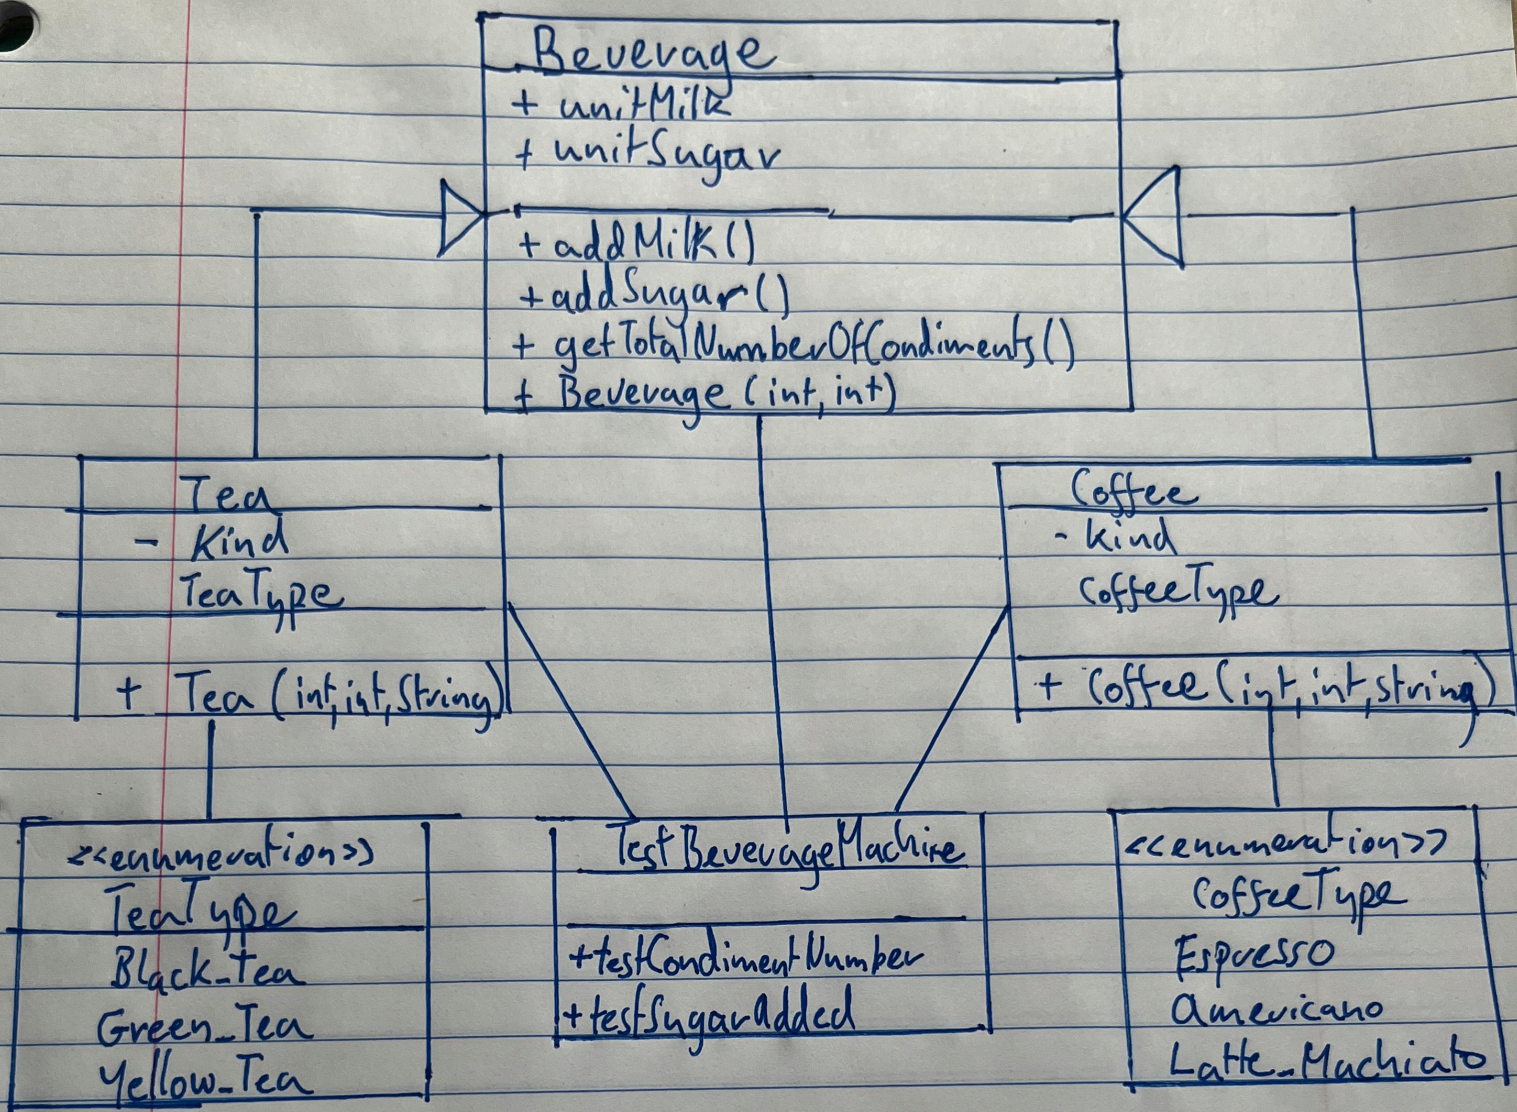 Beverage
+ unitMilk
+ unitSugar
+ addMilk()
+ addSugar()
+ getTotalNumberOfCondiments()
+ Beverage (int, int)
Tea
- Kind
TeaType
+ Tea (int,int,String)
Coffee
- kind
CoffeeType
+ Coffee (int,int,string)
<<enumeration>>
TeaType
Black_Tea
Green_Tea
Yellow_Tea
TestBeverageMachine
+testCondimentNumber
+testSugarAdded
<<enumeration>>
CoffeeType
Espresso
Americano
Latte_Machiato